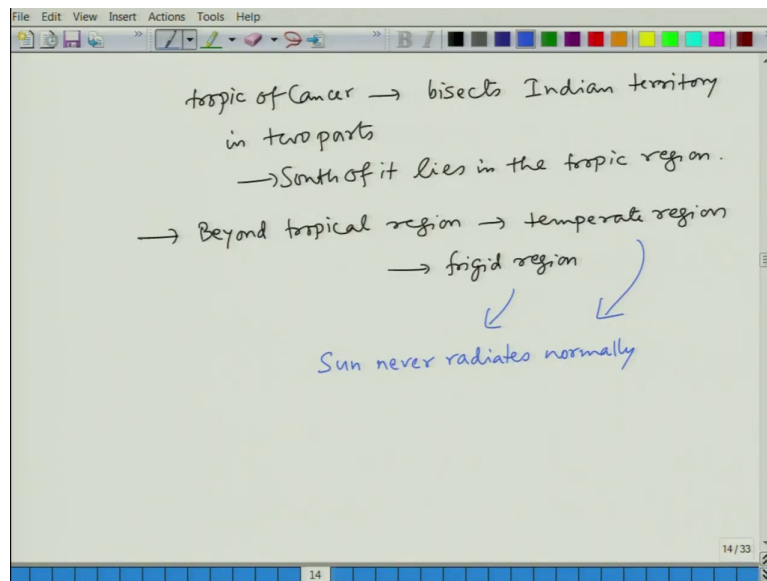 File Edit View Insert Actions Tools Help
B I
tropic of Cancer → bisects Indian territory
in two parts
→ South of it lies in the tropic region.
→ Beyond tropical region → temperate region
→ frigid region
Sun never radiates normally
14/33
14